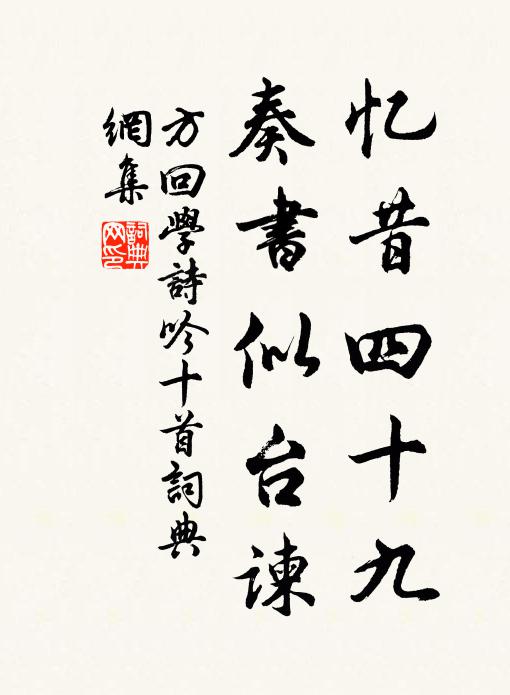 忆昔四十九
奏書似台谏
方回學詩吟十首詞典
網集
詞典网印